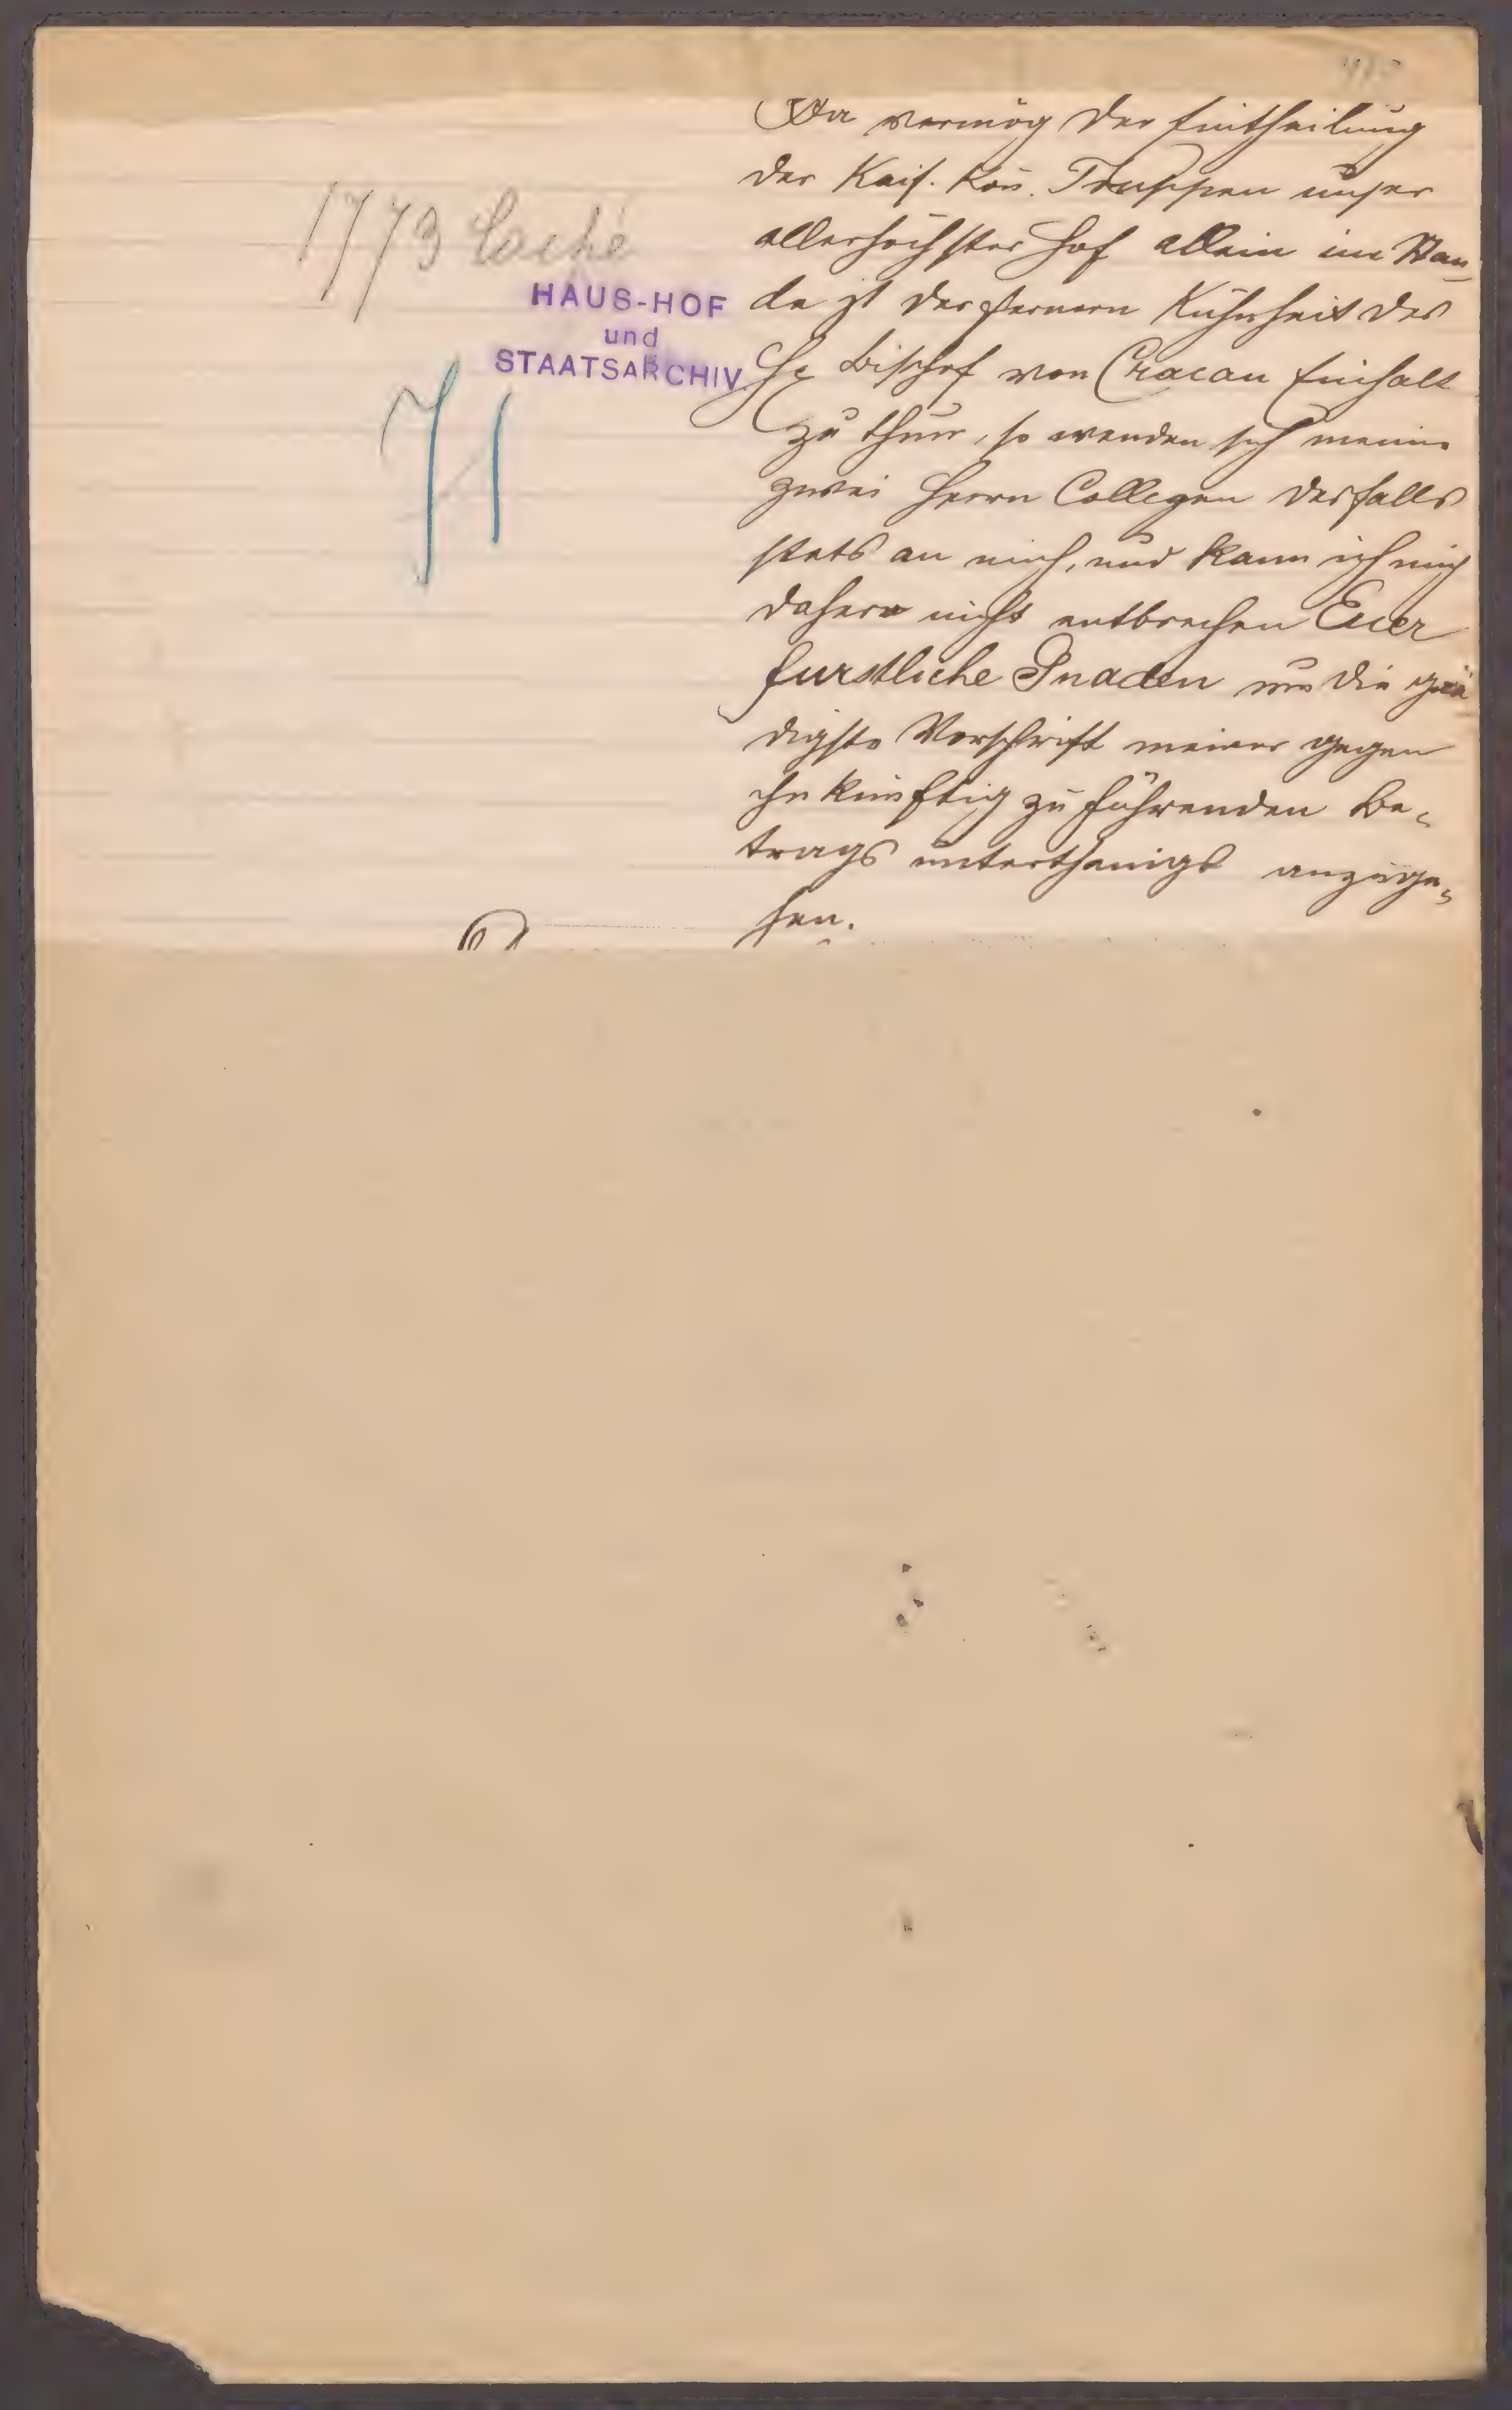 1773 Caché
HAUS-HOF
und
STAATSARCHIV
71
Da vermög der Eintheilung
der Kais. Kön. Truppen unser
allerhöchster Hof allein im Stan-
de ist der fernern Kühnheit des
H. Bischof von Cracau Einhalt
zu thun, so wenden sich meine
zwei Herrn Collegen desfalls
stets an mich, und kann ich mich
dahero nicht entbrechen Euer
furstliche Gnaden um die gnä
digste Vorschrift meines gegen
ihn künftig zu führenden Be-
trags unterthänigst anzuge-
hen.